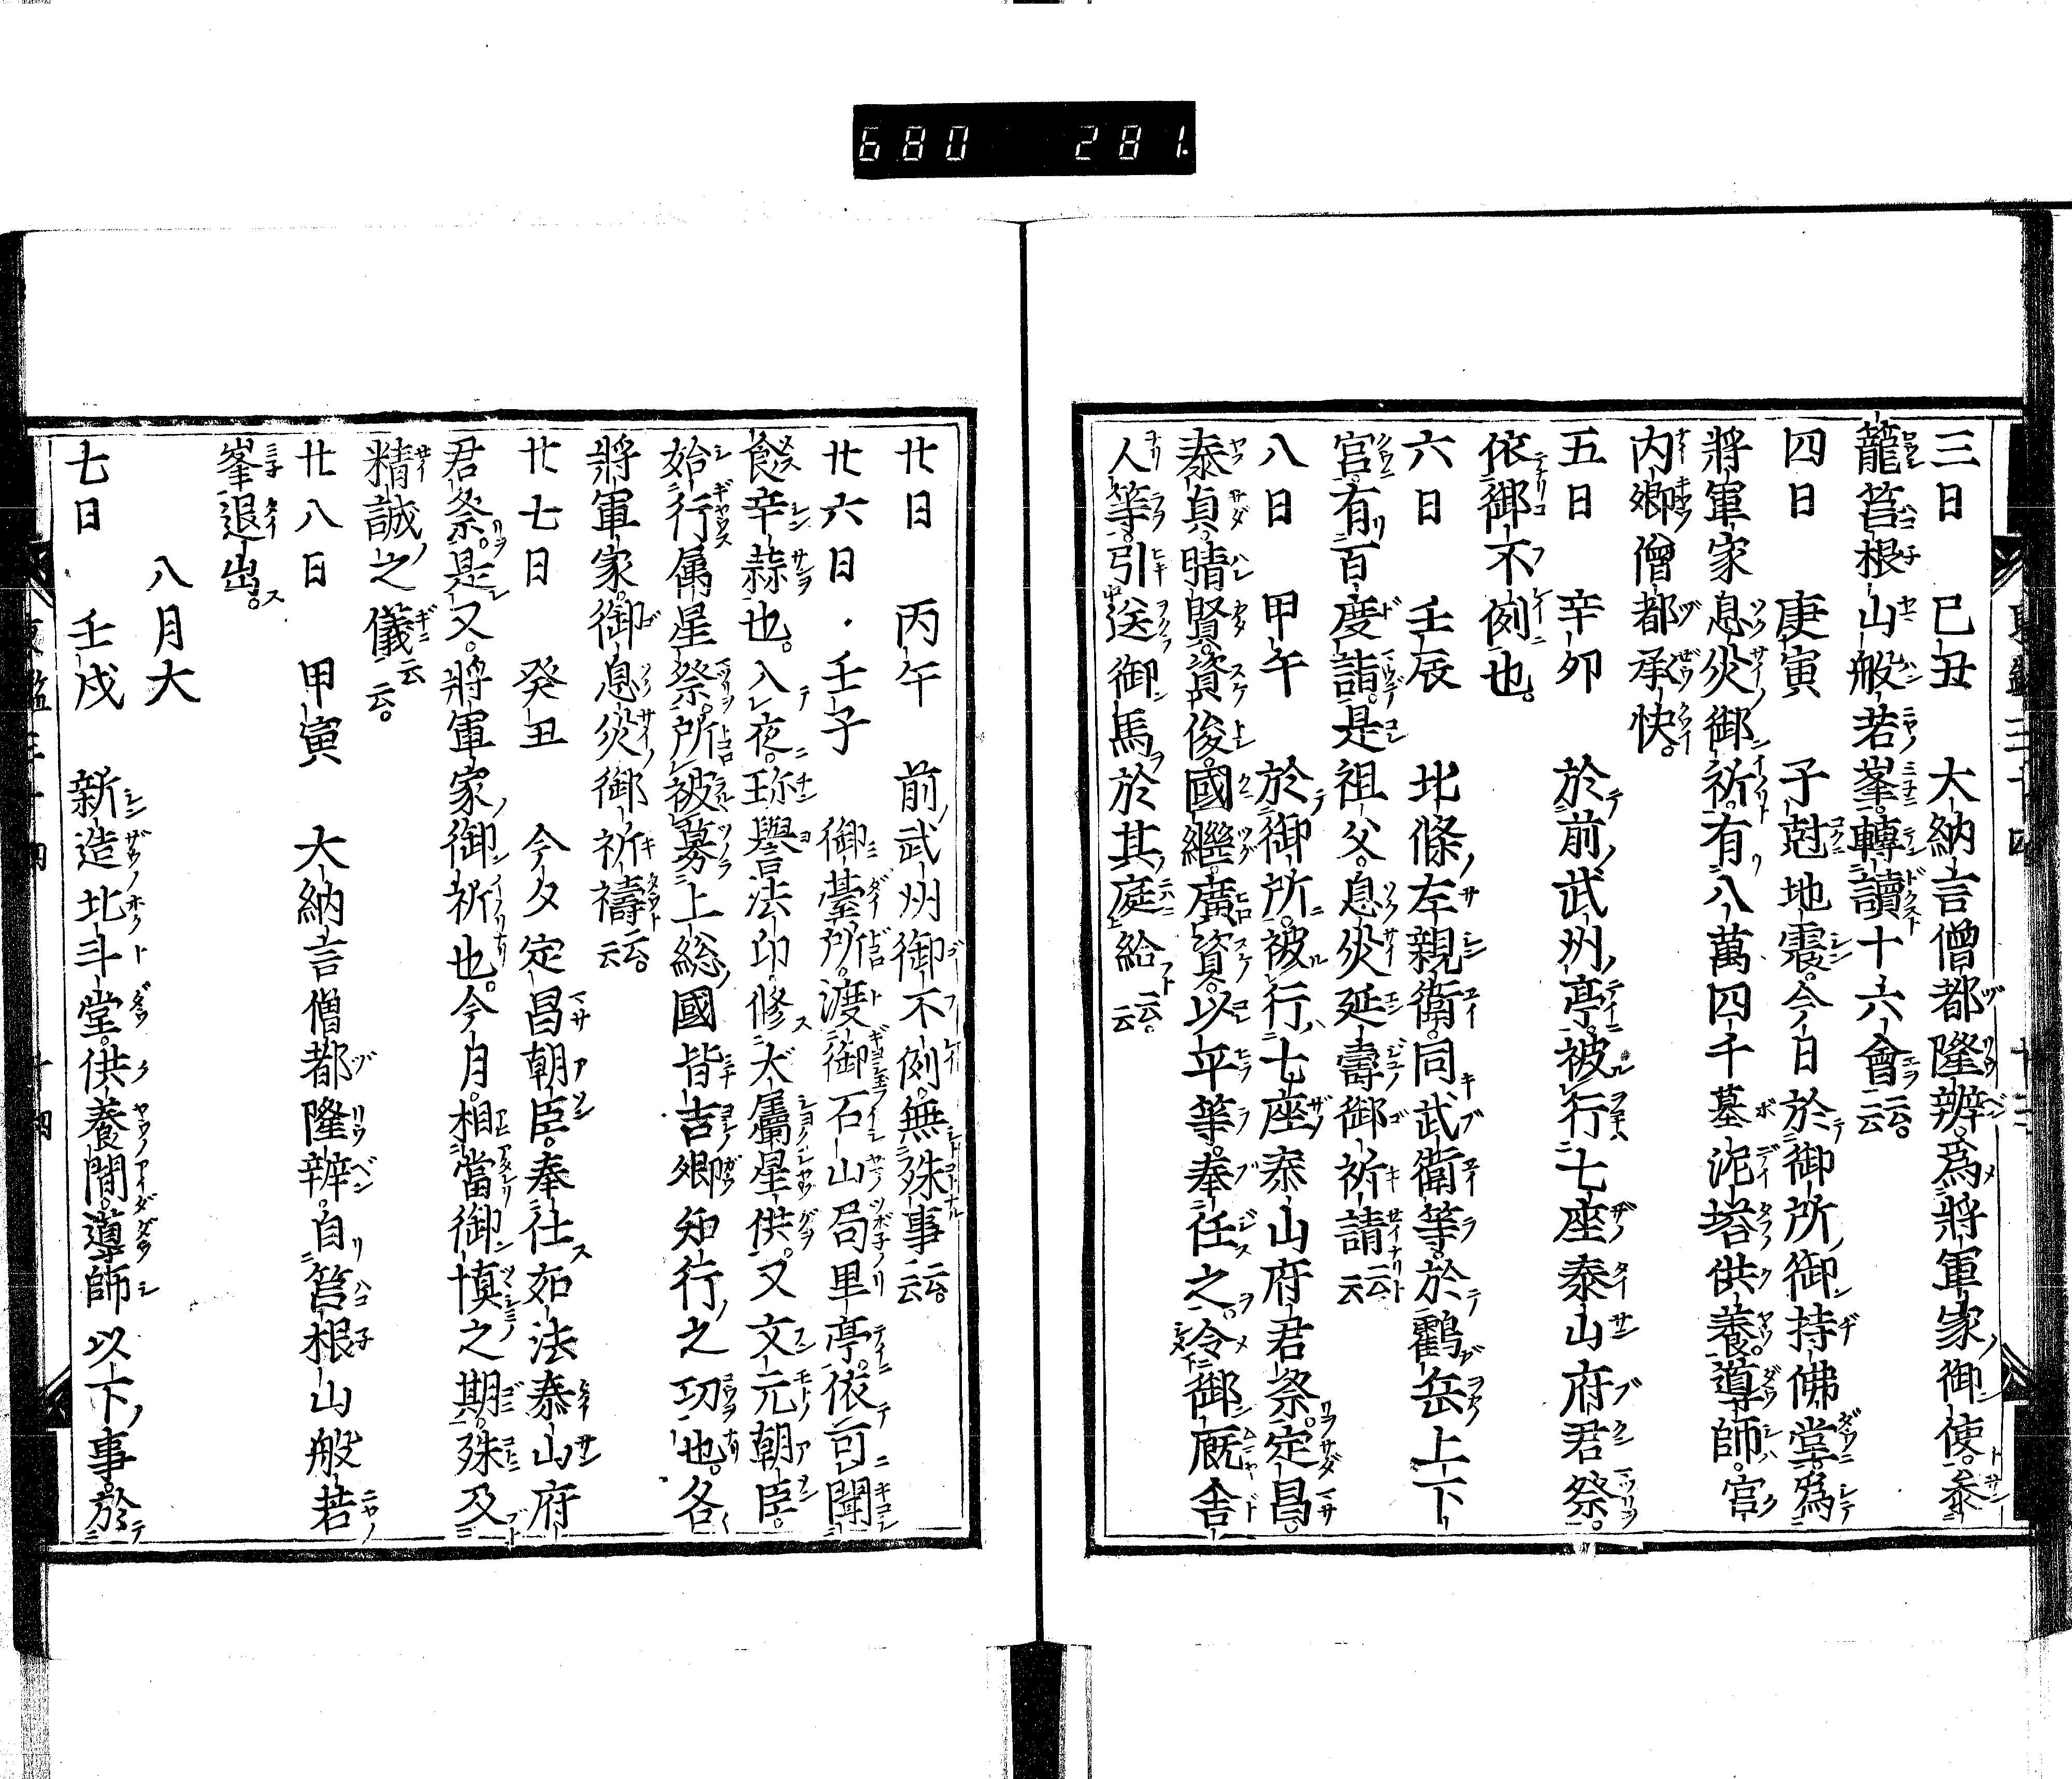 680 281.
三日 己丑 大納言僧都隆辨。爲將軍家御使。參
籠筥根山般若峯。轉讀十六會云云。
四日 庚寅 子尅地震。今日於御所御持佛堂。爲
將軍家息災御祈。有八萬四千基泥塔供養。導師。宮
内卿僧都承快。
五日 辛卯 於前武州亭。被行七座泰山府君祭。
依御不例也。
六日 壬辰 北條左親衛。同武衛等。於鶴岳上下
宮。有百度詣。是祖父。息災延壽御祈請云云
八日 甲午 於御所。被行七座泰山府君祭。定昌。
泰貞。晴賢。資俊。國繼。廣資。以平等。奉仕之。冷御厩舎
人等。引送御馬於其庭給云云。
廿日 丙午 前武州御不例。無殊事云云。
廿六日 壬子 御臺所。渡御石山局里亭。依可聞
食辛蒜也。入夜。珎譽法印。修大属星供。又文元朝臣。
始行属星祭。所被募上総國皆吉郷知行之功也。各
將軍家。御息災御祈禱云云。
廿七日 癸丑 今夕定昌朝臣。奉仕如法泰山府
君祭。是又。將軍家御祈也。今月。相當御愼之期。殊及
精誠之儀云云。
廿八日 甲寅 大納言僧都隆辨。自筥根山般若
峯退出。
八月大
七日 壬戌 新造北斗堂。供養間。導師以下事。於